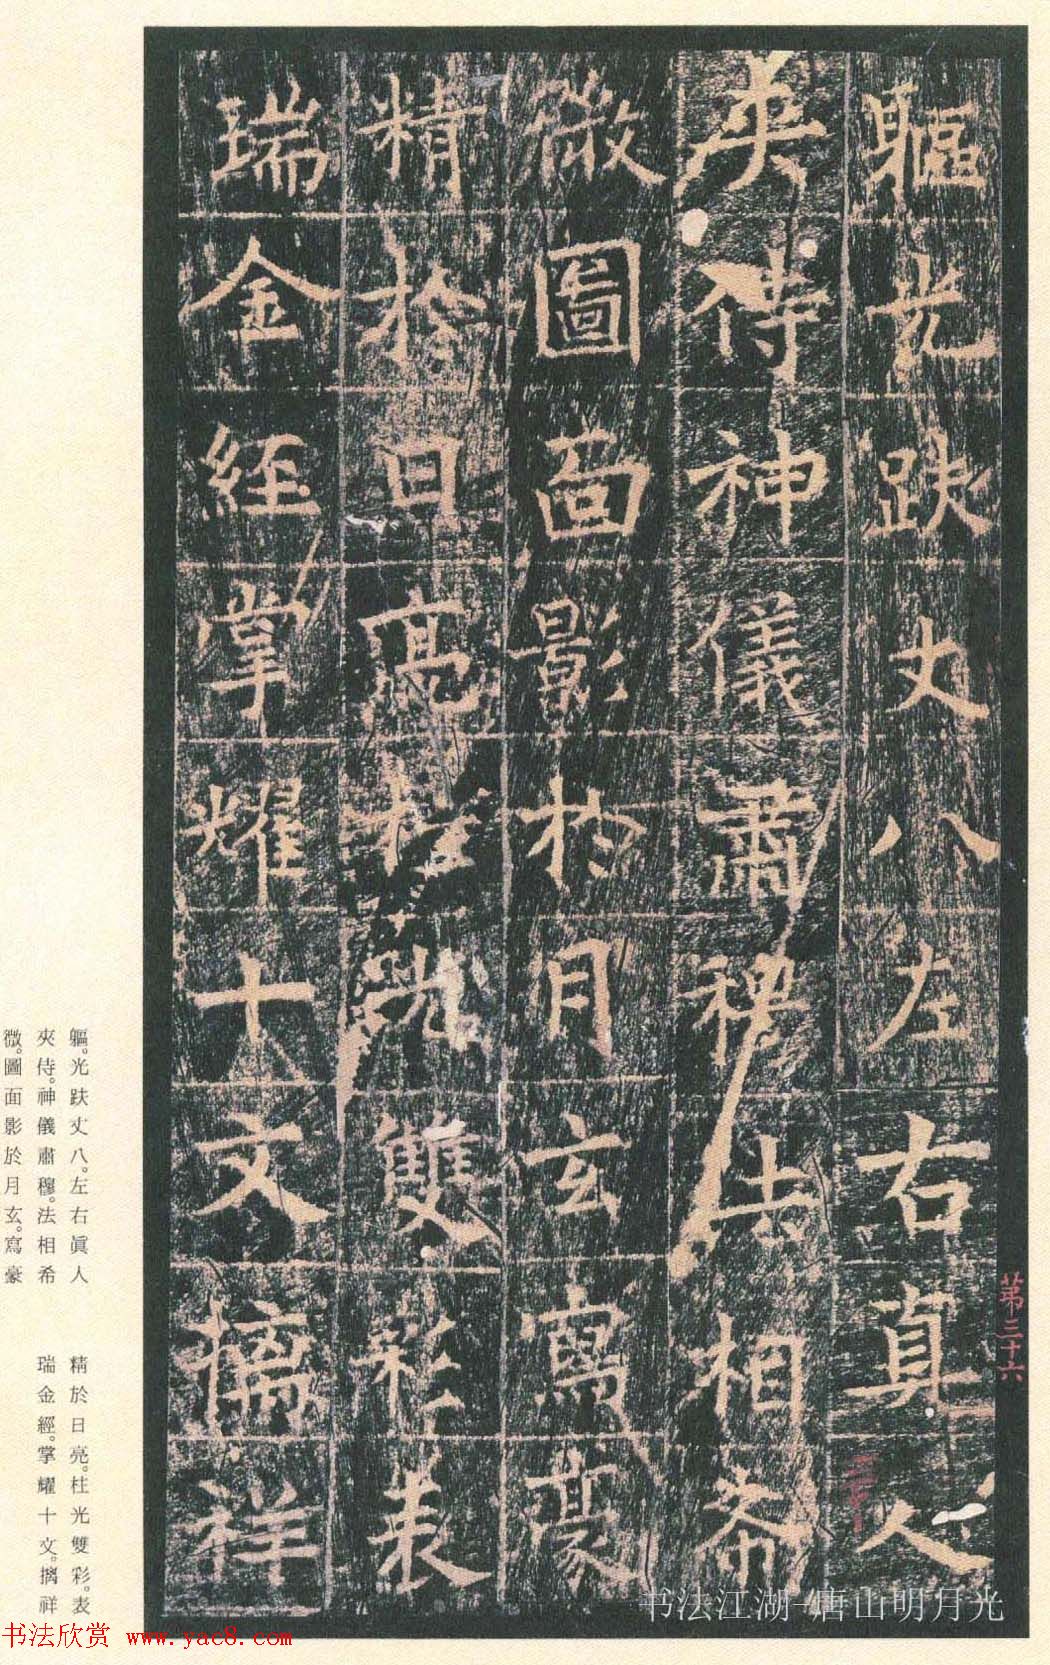 軀光趺丈八左右真人
夾侍神儀肅穆法相希
微圖面影於月玄寫豪
精於日亮柱光雙彩表
瑞金經掌耀十文摛祥
第三十六
軀。光趺丈八。左右眞人
夾侍。神儀肅穆。法相希
微。圖面影於月玄。寫豪
精於日亮。柱光雙彩。表
瑞金經。掌耀十文。摛祥
书法江湖-唐山明月光
书法欣赏 www.yac8.com